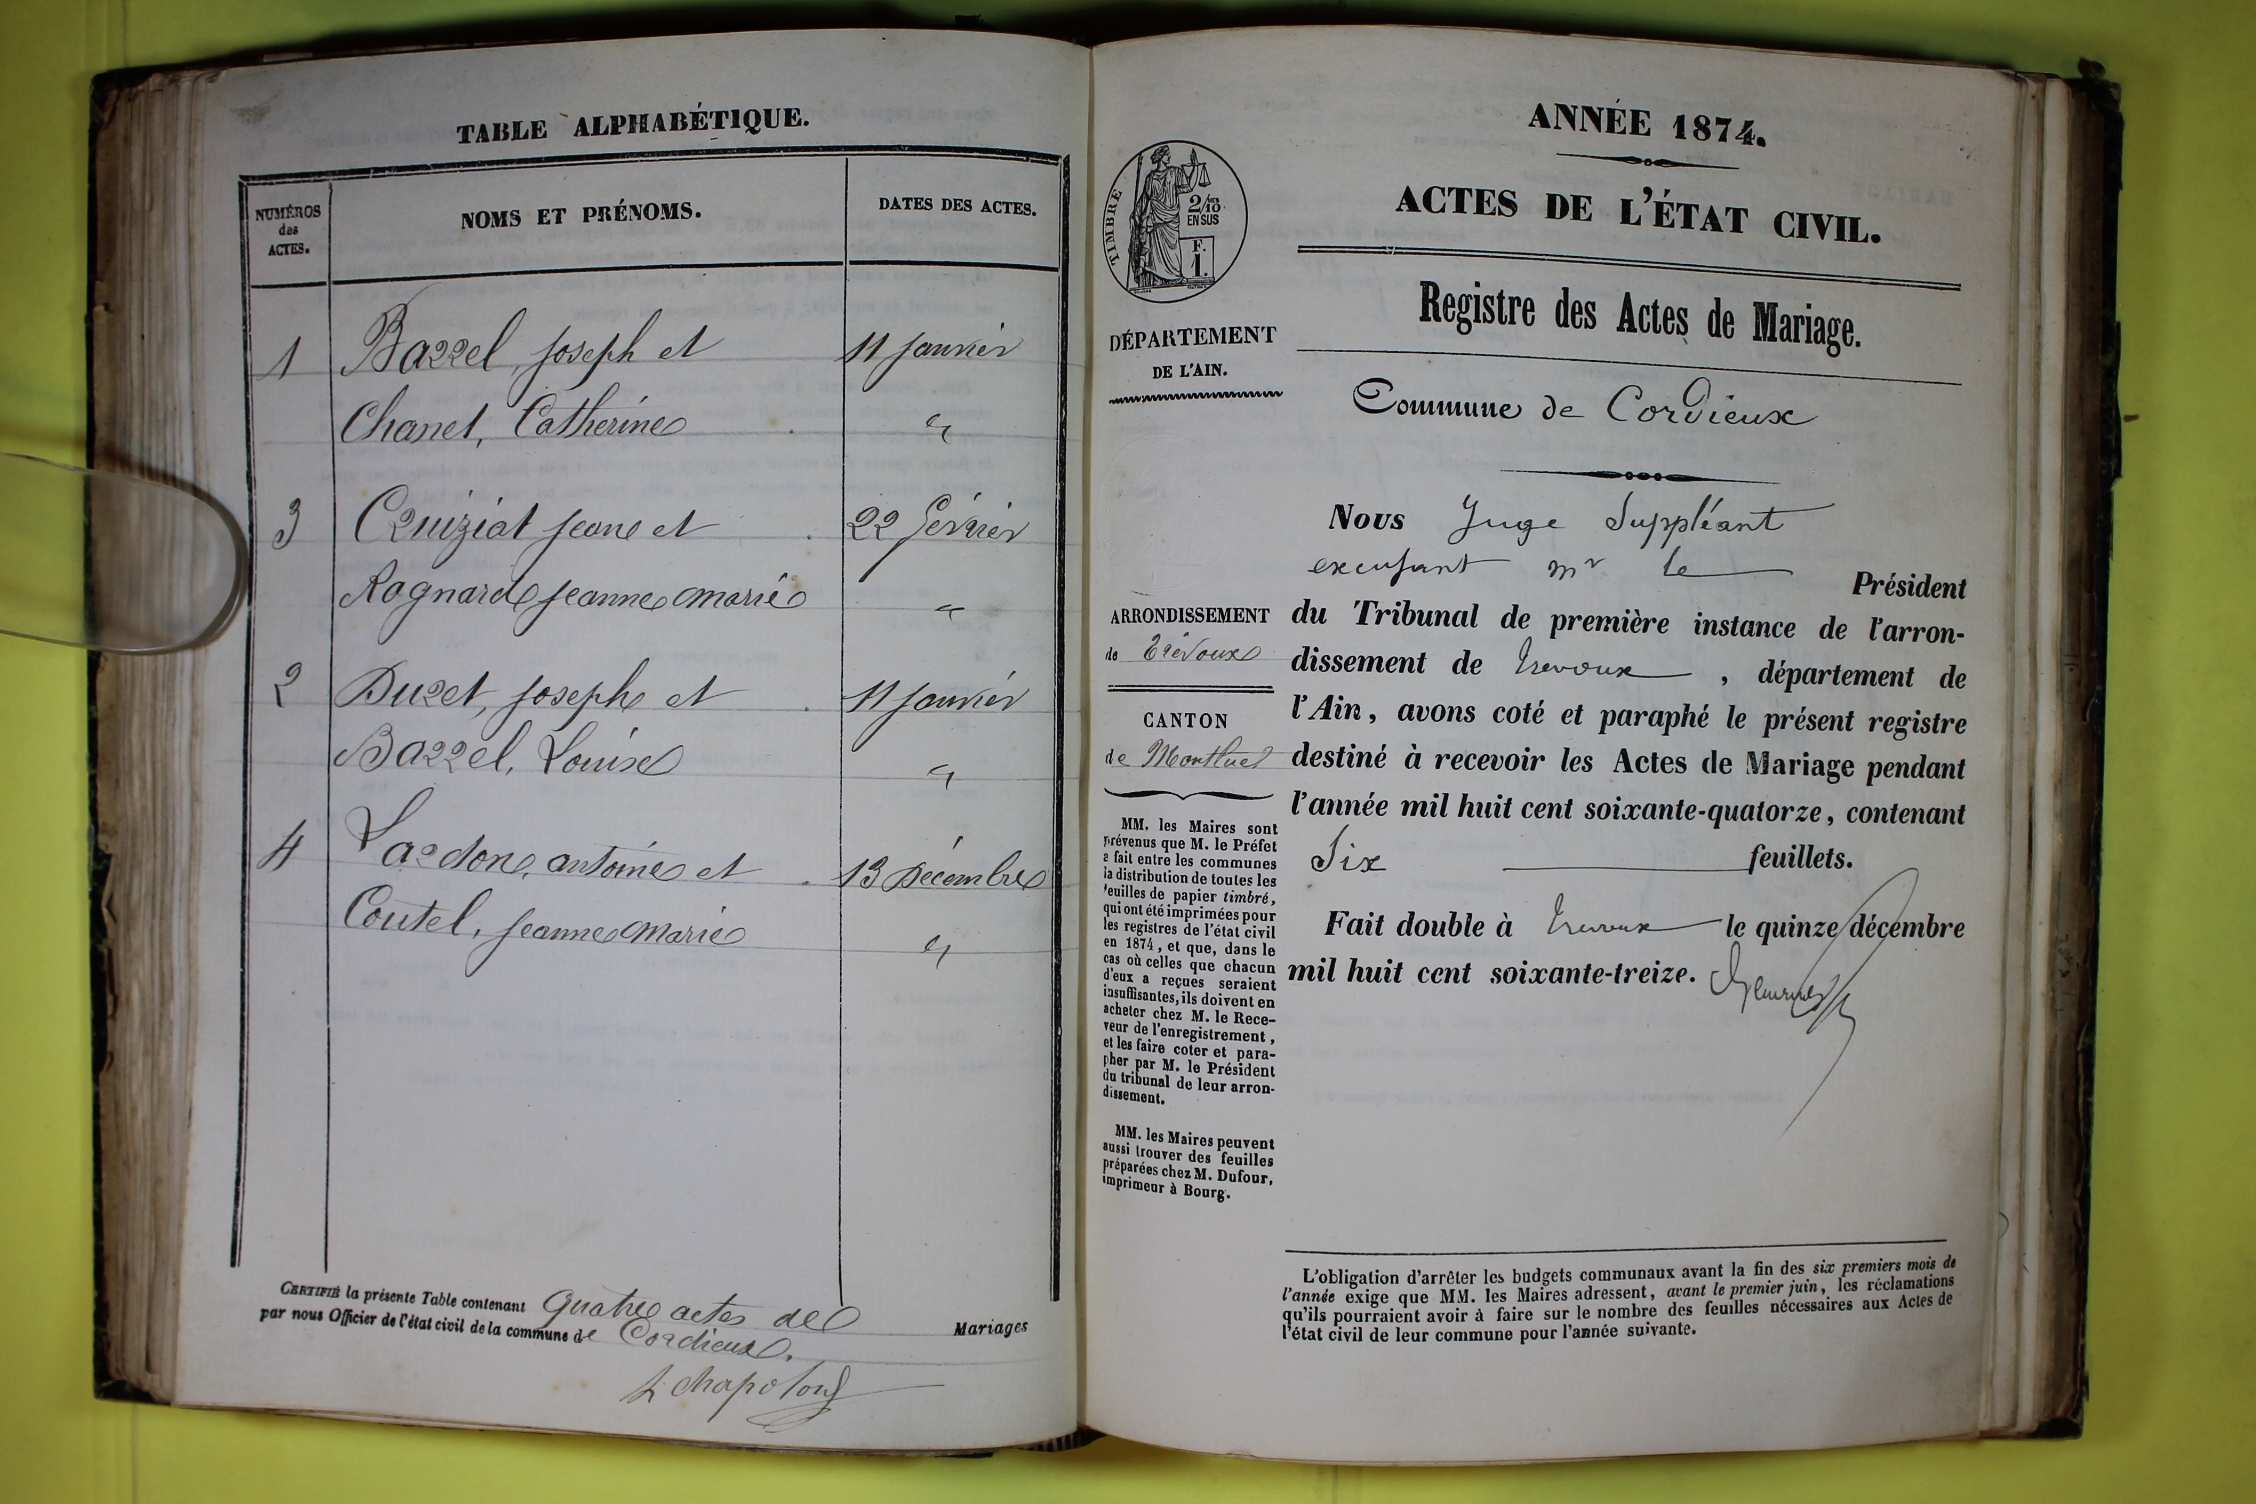 TABLE ALPHABÉTIQUE.
NUMÉROS
des
ACTES.
NOMS ET PRÉNOMS.
DATES DES ACTES.
1 Barrel, Joseph et 11 Janvier
Chanel, Catherine "
3 Cruiziat Jean et 22 Février
Rognard Jeanne Marie "
2 Buret, Joseph et 11 Janvier
Barrel, Louise "
4 Lardon, antoine et 13 Décembre
Coutel, Jeanne Marie "
CERTIFIÉ la présente Table contenant Quatre actes de Mariages
par nous Officier de l'état civil de la commune de Cordieux.
ANNÉE 1874.
ACTES DE L'ÉTAT CIVIL.
TIMBRE
2/10
EN SUS
F.
1.
Registre des Actes de Mariage.
DÉPARTEMENT
DE L'AIN.
Commune de Cordieux
Nous Juge Suppléant
excusant Mr le Président
du Tribunal de première instance de l'arron-
dissement de Trevoux, département de
l'Ain, avons coté et paraphé le présent registre
destiné à recevoir les Actes de Mariage pendant
l'année mil huit cent soixante-quatorze, contenant
Six feuillets.
Fait double à Trevoux le quinze décembre
mil huit cent soixante-treize.
ARRONDISSEMENT
de Trévoux
CANTON
de Montluel
MM. les Maires sont
prévenus que M. le Préfet
a fait entre les communes
la distribution de toutes les
feuilles de papier timbré,
qui ont été imprimées pour
les registres de l'état civil
en 1874, et que, dans le
cas où celles que chacun
d'eux a reçues seraient
insuffisantes, ils doivent en
acheter chez M. le Rece-
veur de l'enregistrement,
et les faire coter et para-
pher par M. le Président
du tribunal de leur arron-
dissement.
MM. les Maires peuvent
aussi trouver des feuilles
préparées chez M. Dufour,
imprimeur à Bourg.
L'obligation d'arrêter les budgets communaux avant la fin des six premiers mois de
l'année exige que MM. les Maires adressent, avant le premier juin, les réclamations
qu'ils pourraient avoir à faire sur le nombre des feuilles nécessaires aux Actes de
l'état civil de leur commune pour l'année suivante.